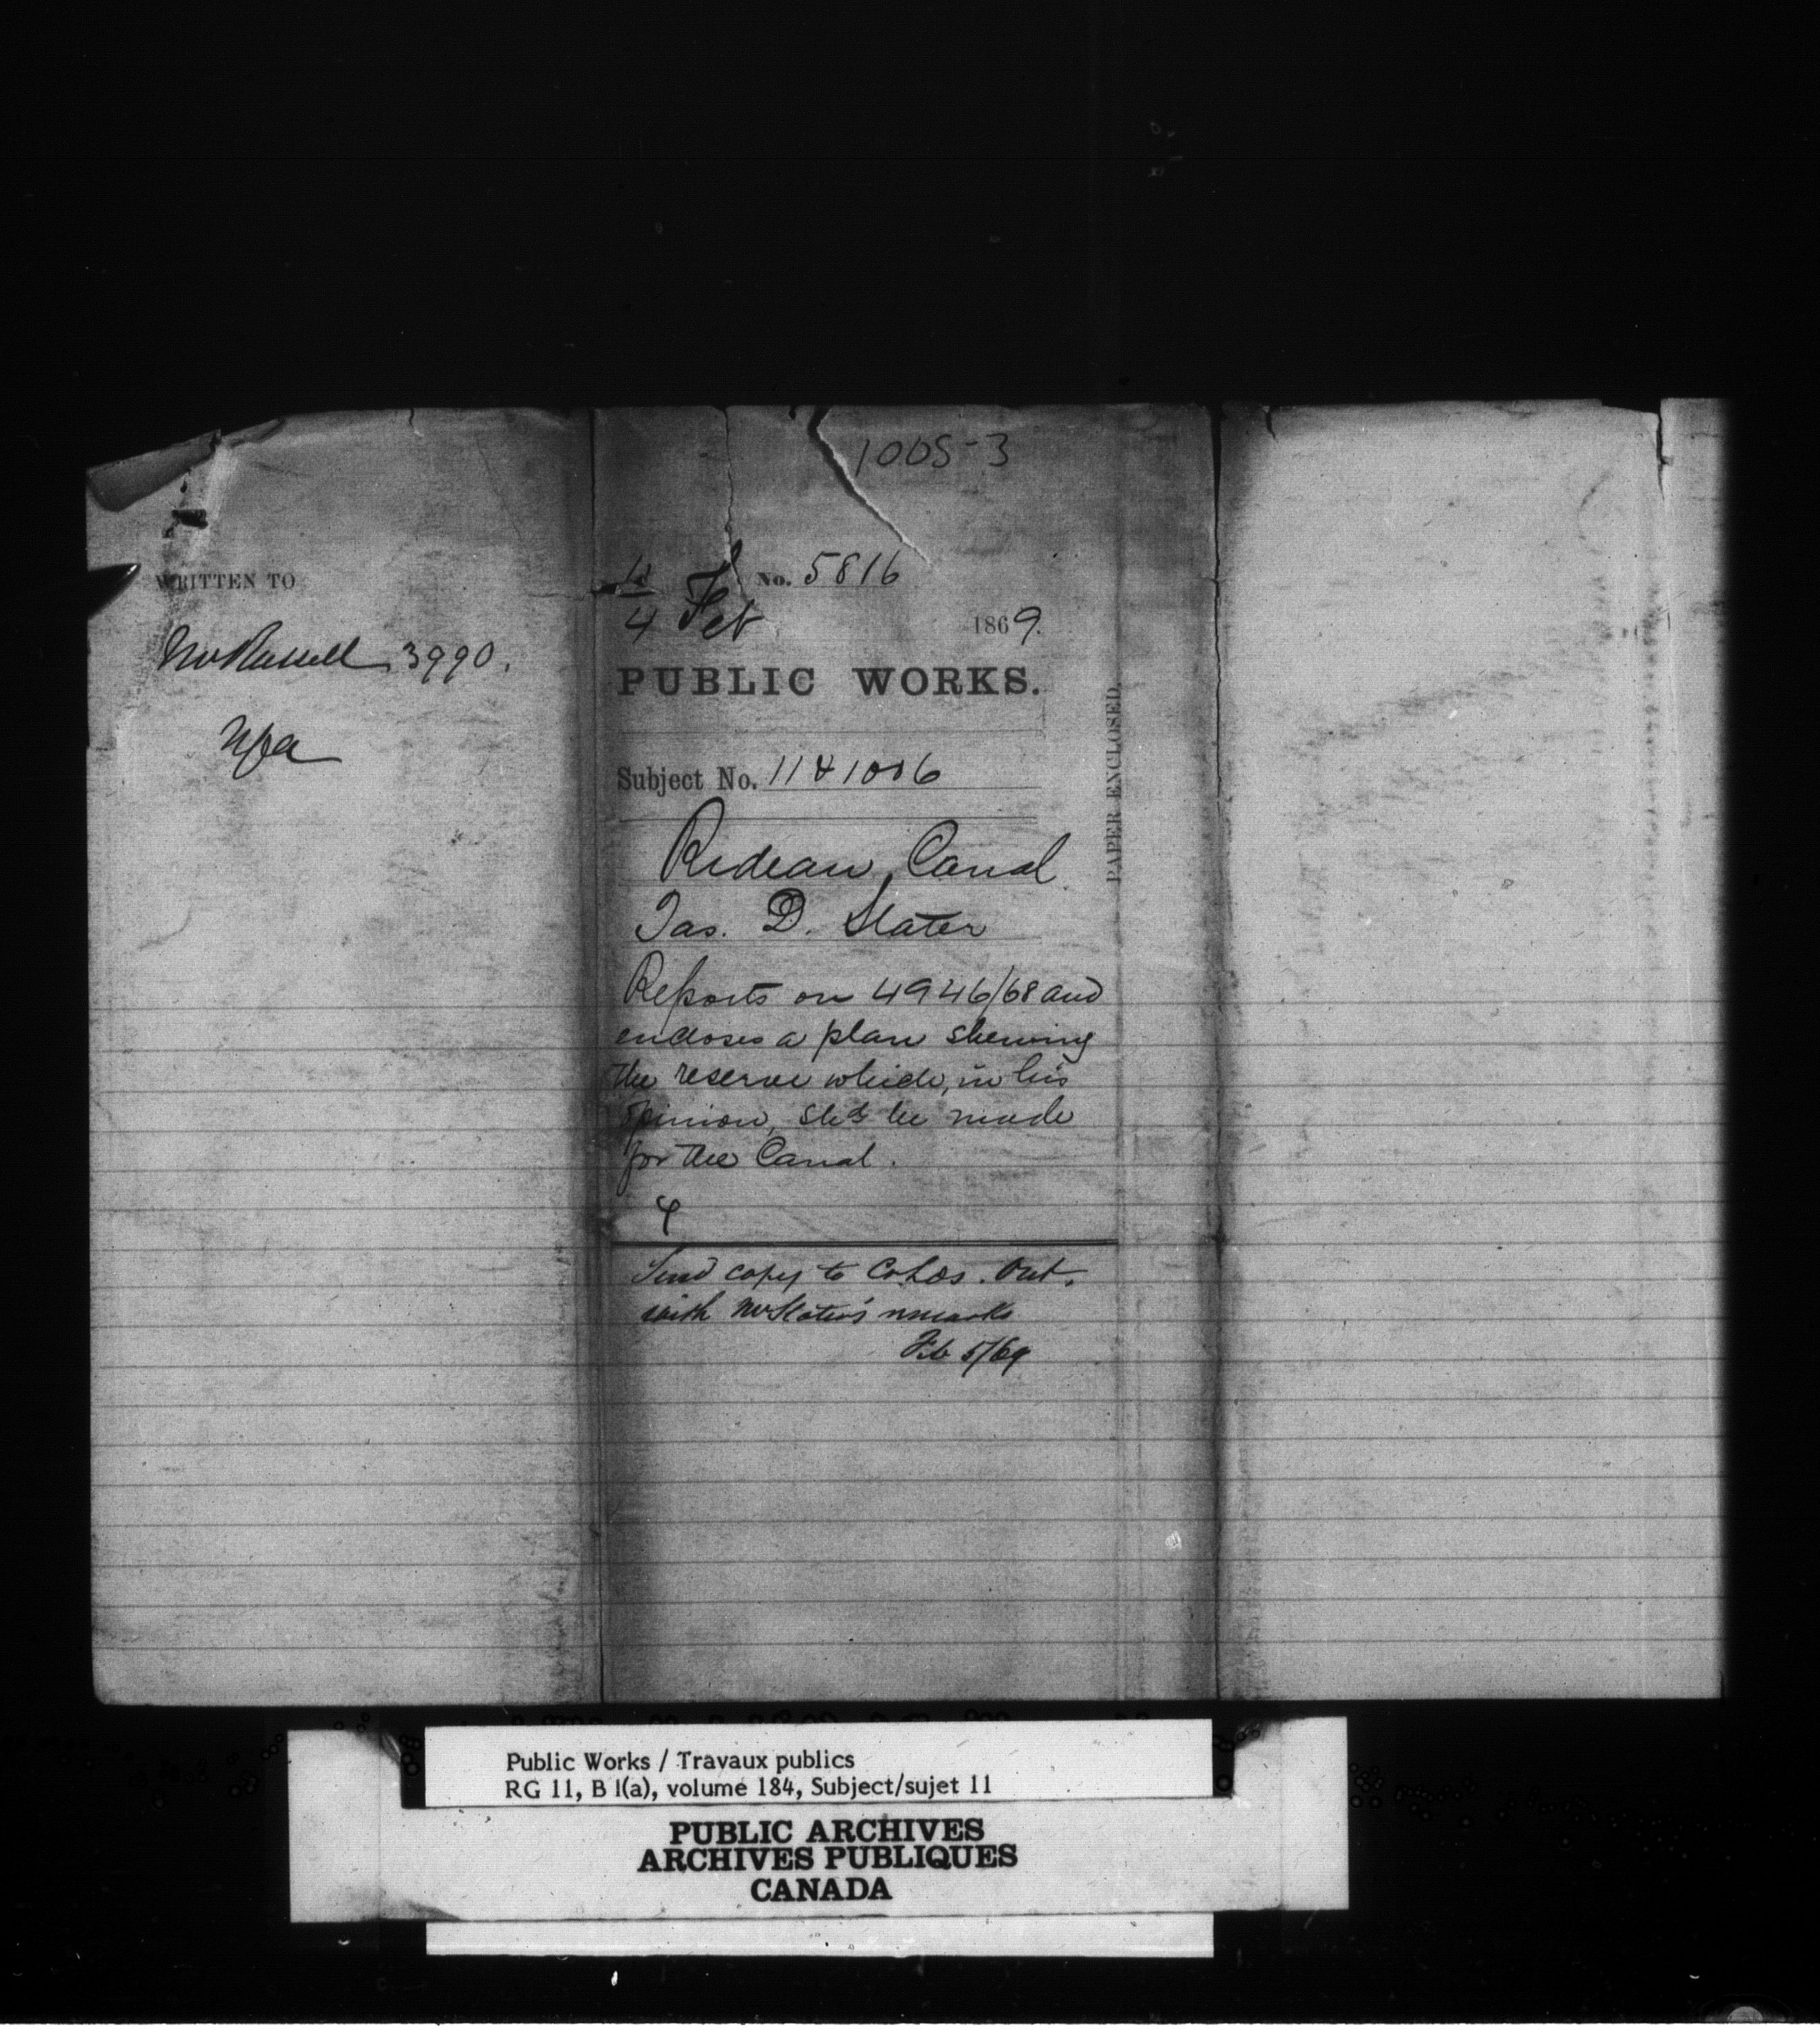 WRITTEN TO
Mr Russell 3990.
Nfa
1005-3
No. 5816
4 Feb 1869.
PUBLIC WORKS.
Subject No. 11 & 1006
Rideau Canal
Jas. D. Slater
Reports on 4946/68 and
encloses a plan shewing
the reserve which, in his
opinion, shd be made
for the Canal.
Send copy to Co. Lds. Ont.
with Mr Slater's remarks
Feb 5/69
PAPER ENCLOSED.
Public Works / Travaux publics
RG 11, B 1(a), volume 184, Subject/sujet 11
PUBLIC ARCHIVES
ARCHIVES PUBLIQUES
CANADA